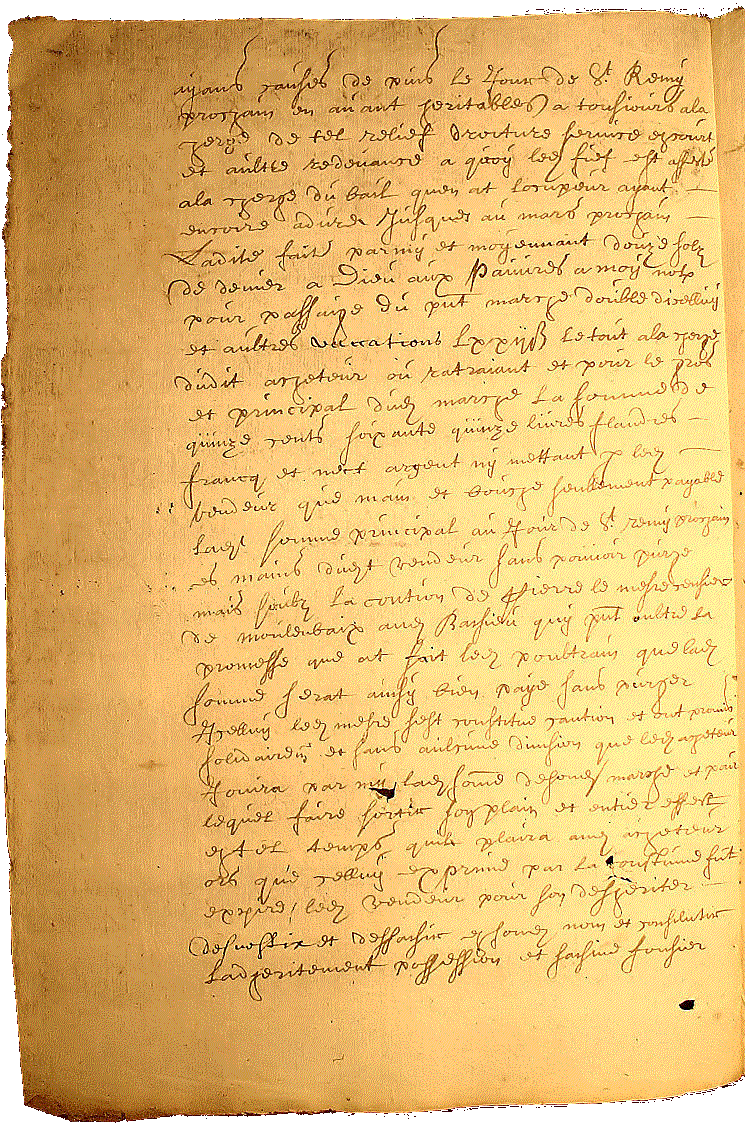 ayans causes de puis le Jour de St Remy
prochain en avant heritables a tousiours a la
cherge de tel relief droiture service et court
et aultre redevance a quoy led fief est affecté
a la cherge du bail quen at locupeur ayant
encoire a durer Jusques au mars prochain
Ladite faite parmy et moyennant douze solz
de denier a Dieu aux pauvres a moy nore
pour passaige du pnt marche double dicelluy
et aultres vaccations Lxxij ß le tout a la cherge
dudit acheteur ou ratraiant et pour le gros
et principal dud marche la somme de
quinze cents soixante quinze livres flandres
francq et nect argent ny mettant p led
vendeur que main et bourse seullement payable
lad somme principal au Jour de St remy prochain
es mains dudt vendeur sans pouvoir purge
mais soubz la caution de Pierre le mesre censier
de moulenbaix aud Bassieu quy pnt oultre la
promesse que at fait led poultrain que lad
somme serat ainsy bien paye sans purger
Jcelluy led mesre sest constitue caution et ont promis
solidairemt et sans aulcune division que led acheteur
Jouira parmy lad some de soned marche et pair
lequel faire sortir son plain et entier effect
et tel temps quil plaira aud acheteur
ors que celluy exprime par la coustume fut
expire led vendeur pour son desheriter
desvestir et dessaisir et soned nom et consentir
ladheritement possession et saisine fonsier